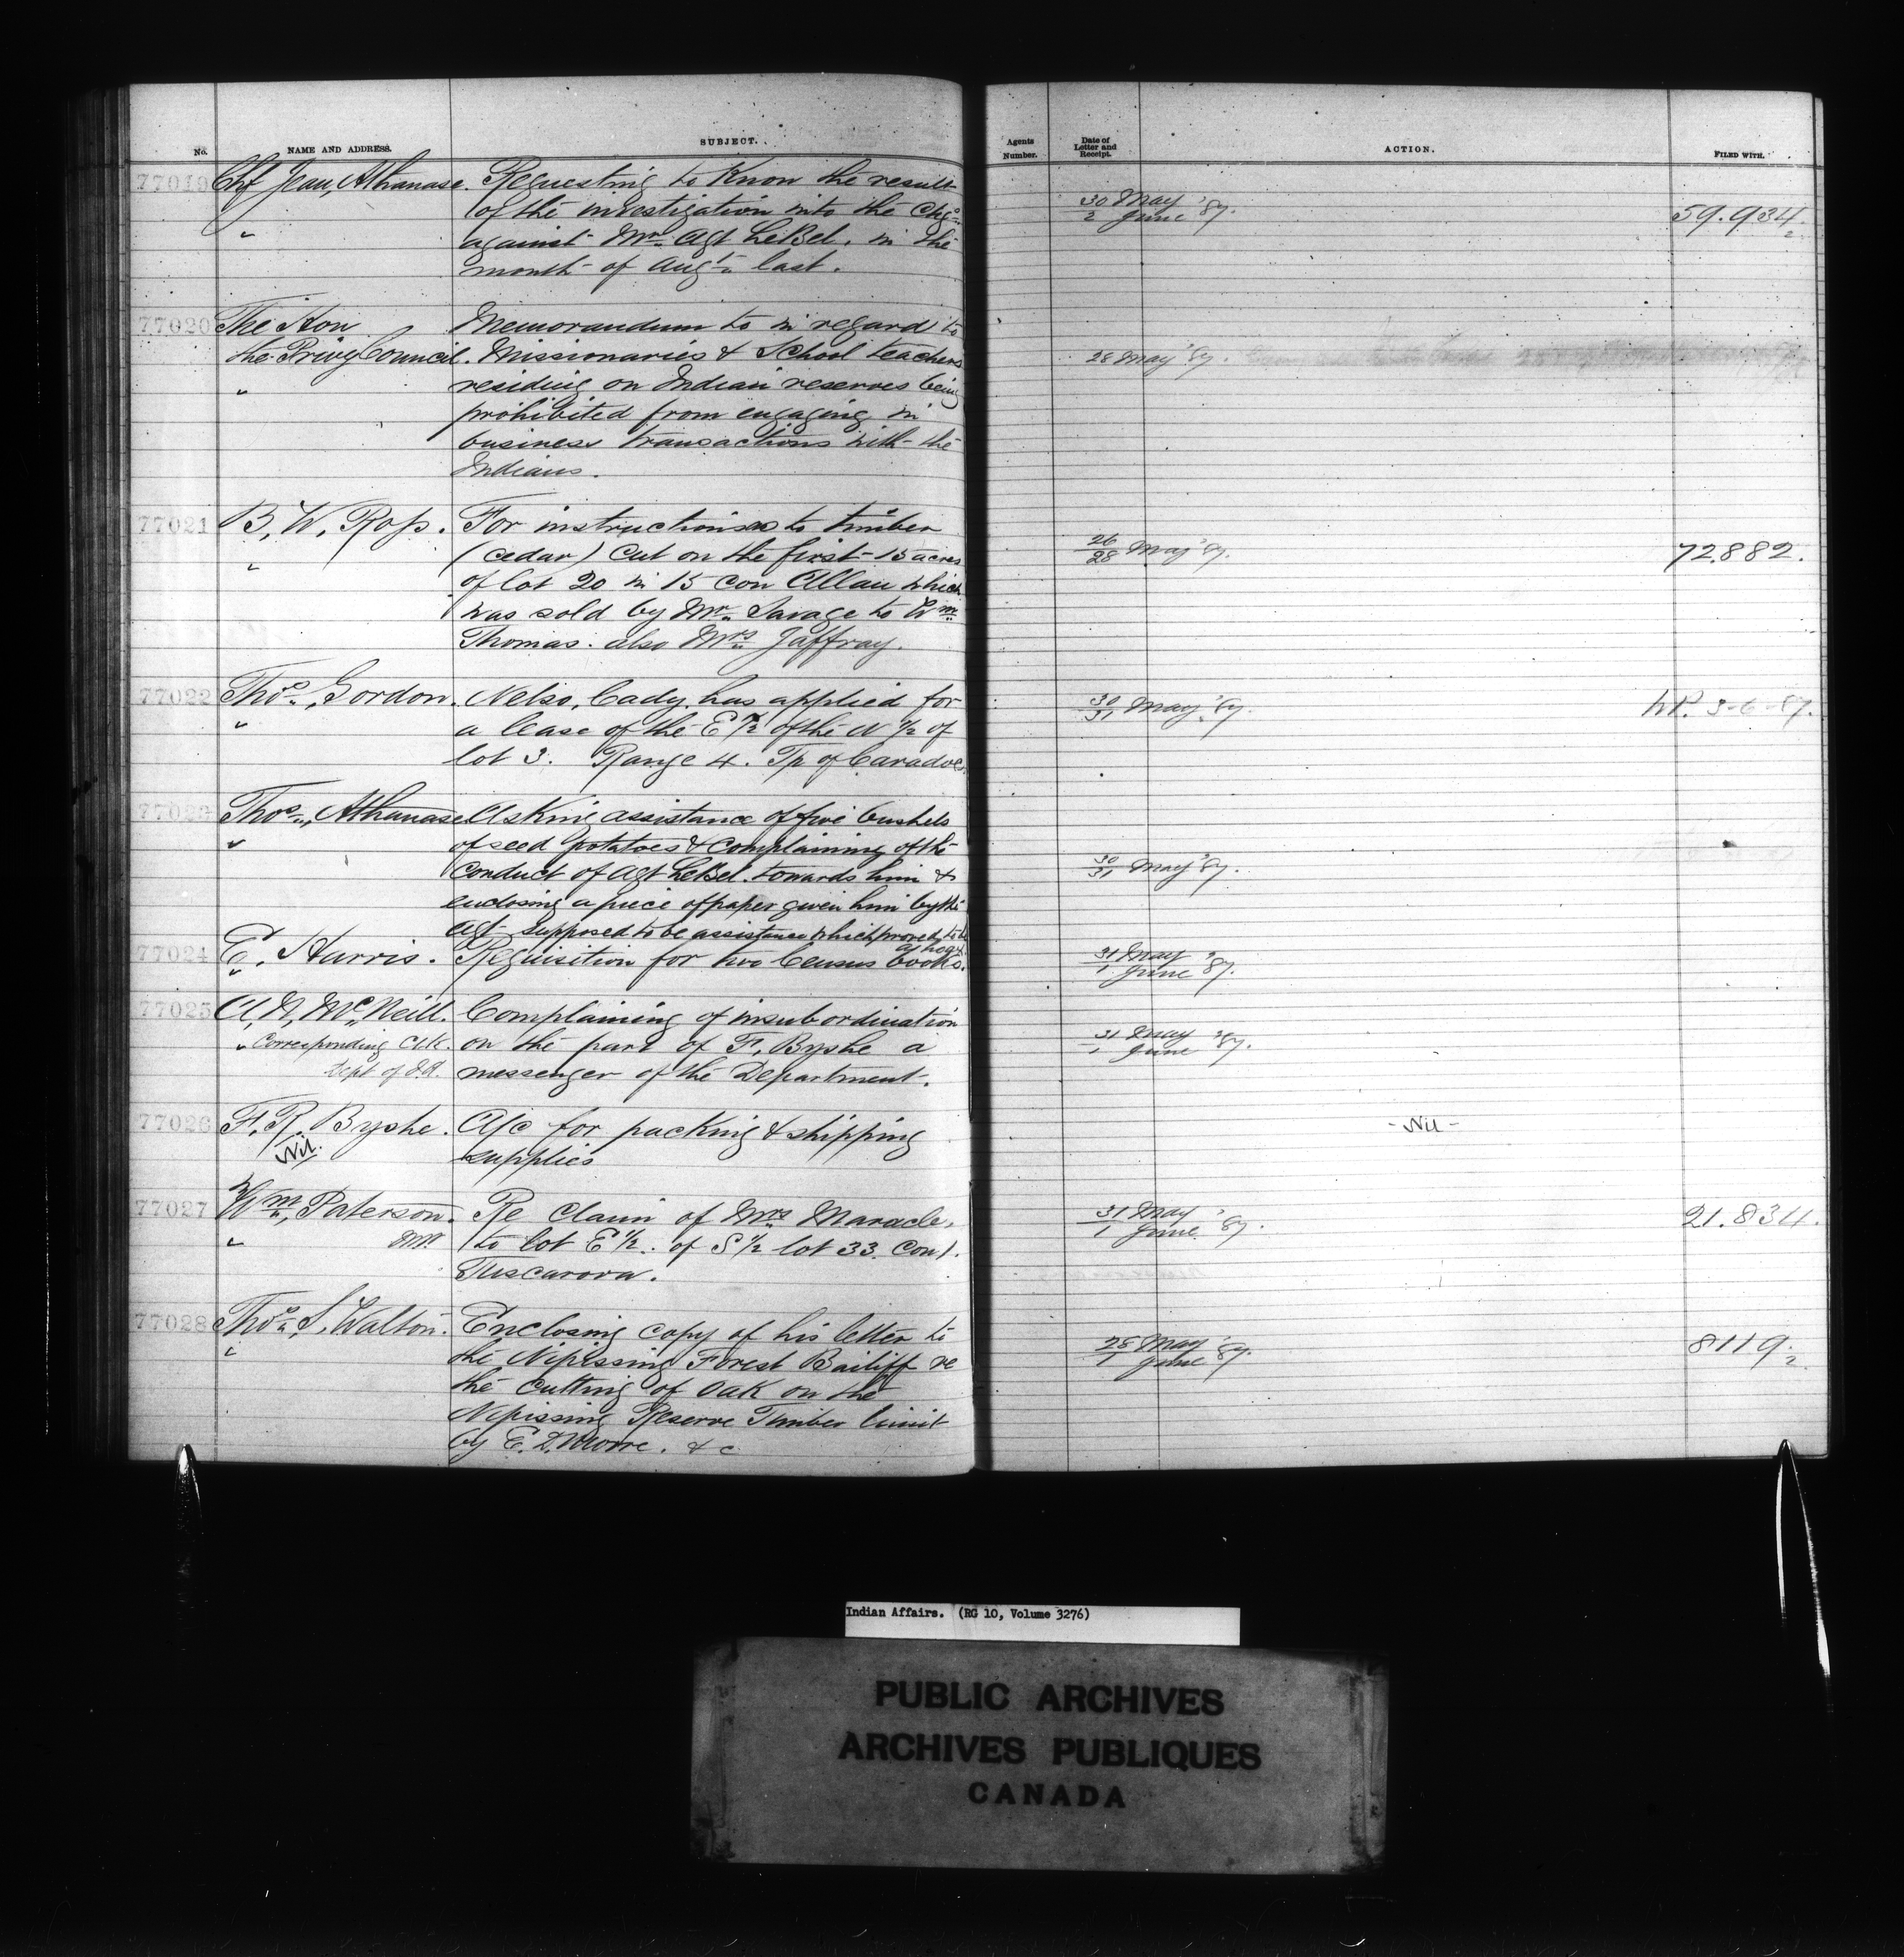 No. NAME AND ADDRESS. SUBJECT. Agents Number. Date of Letter and Receipt. ACTION. FILED WITH.
77019 Chf Jean, Athanase. Requesting to Know the result 30 May '87. 59.934
" of the investigation into the chgs 2 June 2
against Mr. Agt LeBel. in the
month of Augt last.
77020 The Hon Memorandum to in regard to
the Privy Council. Missionaries & School teachers 28 May '87.
" residing on Indian reserves being
prohibited from engaging in
business transactions with the
Indians.
77021 B, W. Ross. For instructions as to timber
" (cedar) cut on the first 15 acres 26/28 May '87. 72.882.
of lot 20 in 15 con Allan which
was sold by Mr. Savage to Wm
Thomas. also Mrs Jaffray.
77022 Thos. Gordon. Nelso, Cady, has applied for 30/31 May '87. 3-6-87.
" a lease of the E 1/2 of the N 1/2 of
lot 3. Range 4. Tp of Caradoc
77023 Thos., Athanase Asking assistance of five bushels
" of seed potatoes & complaining of the
conduct of Agt LeBel. towards him & 30/31 May '87.
enclosing a piece of paper given him by the
Agt supposed to be assistance which proved to be
77024 E. Harris. Requisition for two Census books. 31 May
" 1 June '87.
77025 A, N, McNeill. Complaining of insubordination
" Corresponding Clk. on the part of F, Byshe a 31 May
Dept of I.A. messenger of the Department. 1 June '87.
77026 F. R. Byshe. A/c for packing & shipping - Nil -
Nil. supplies
77027 Wm, Paterson. Re Claim of Mrs Maracle, 31 May 21.834.
" M.P. to lot E 1/2. of S 1/2 lot 33. Con 1. 1 June '87.
Tuscarora.
77028 Thos. S, Walton. Enclosing copy of his letter to
" the Nipissing Forest Bailiff re 28 May 8119.
the cutting of oak on the 1 June '87. 2
Nipissing Reserve Timber limit
by E. D. Moore. & c
Indian Affairs. (RG 10, Volume 3276)
PUBLIC ARCHIVES
ARCHIVES PUBLIQUES
CANADA